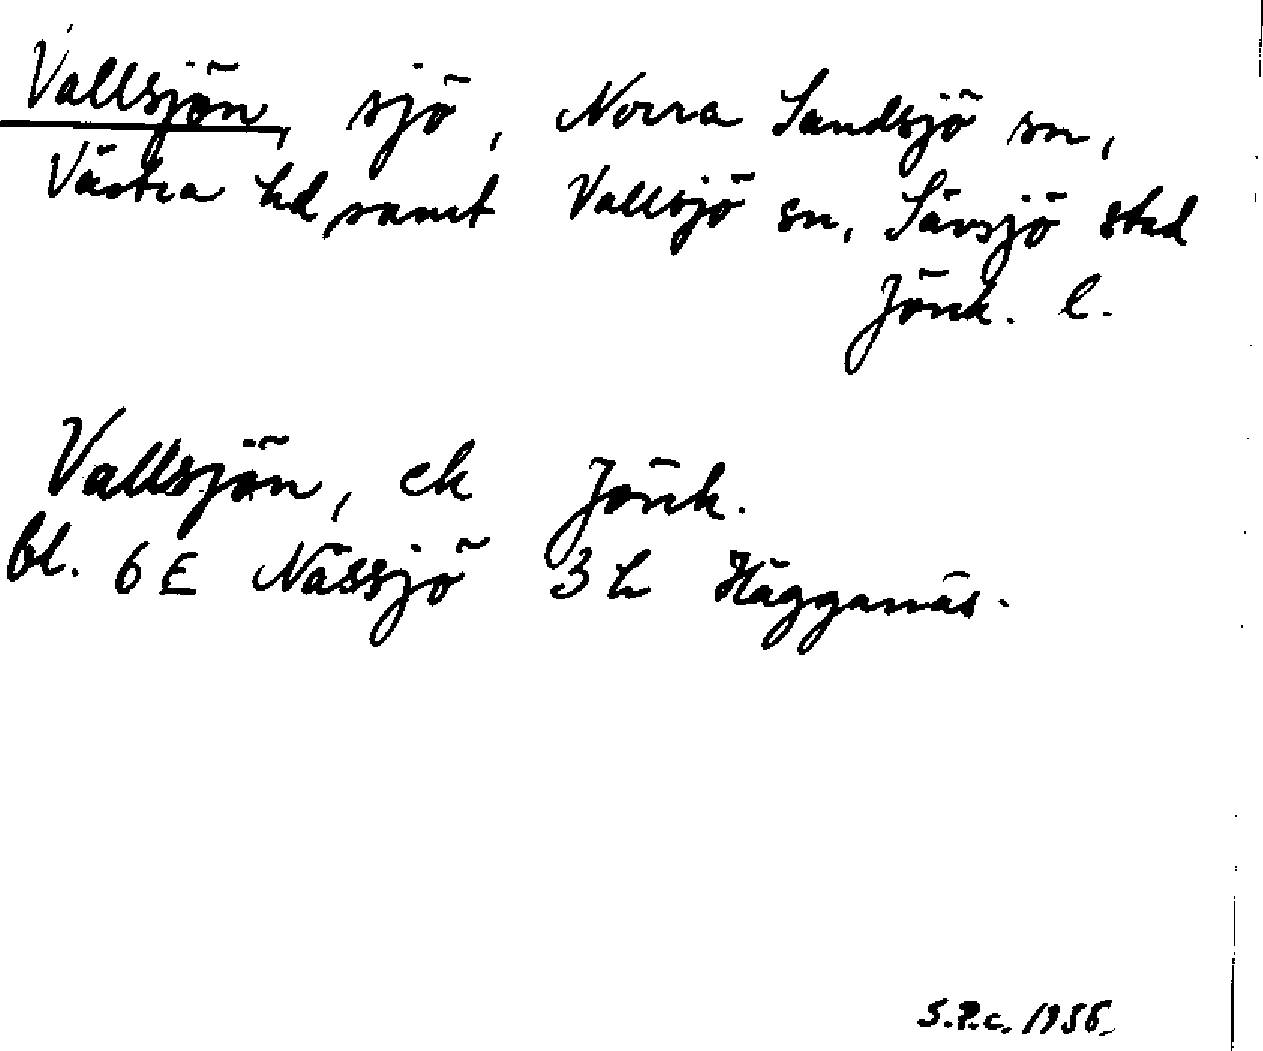 Vallsjön, sjö, Norra Sandsjö sn,
Västra hd samt Vallsjö sn, Sävsjö stad
Jönk. l.
Vallsjön, ek Jönk.
bl. 6 E Nässjö 3 h Hägganäs.
S.P.c. 1956.